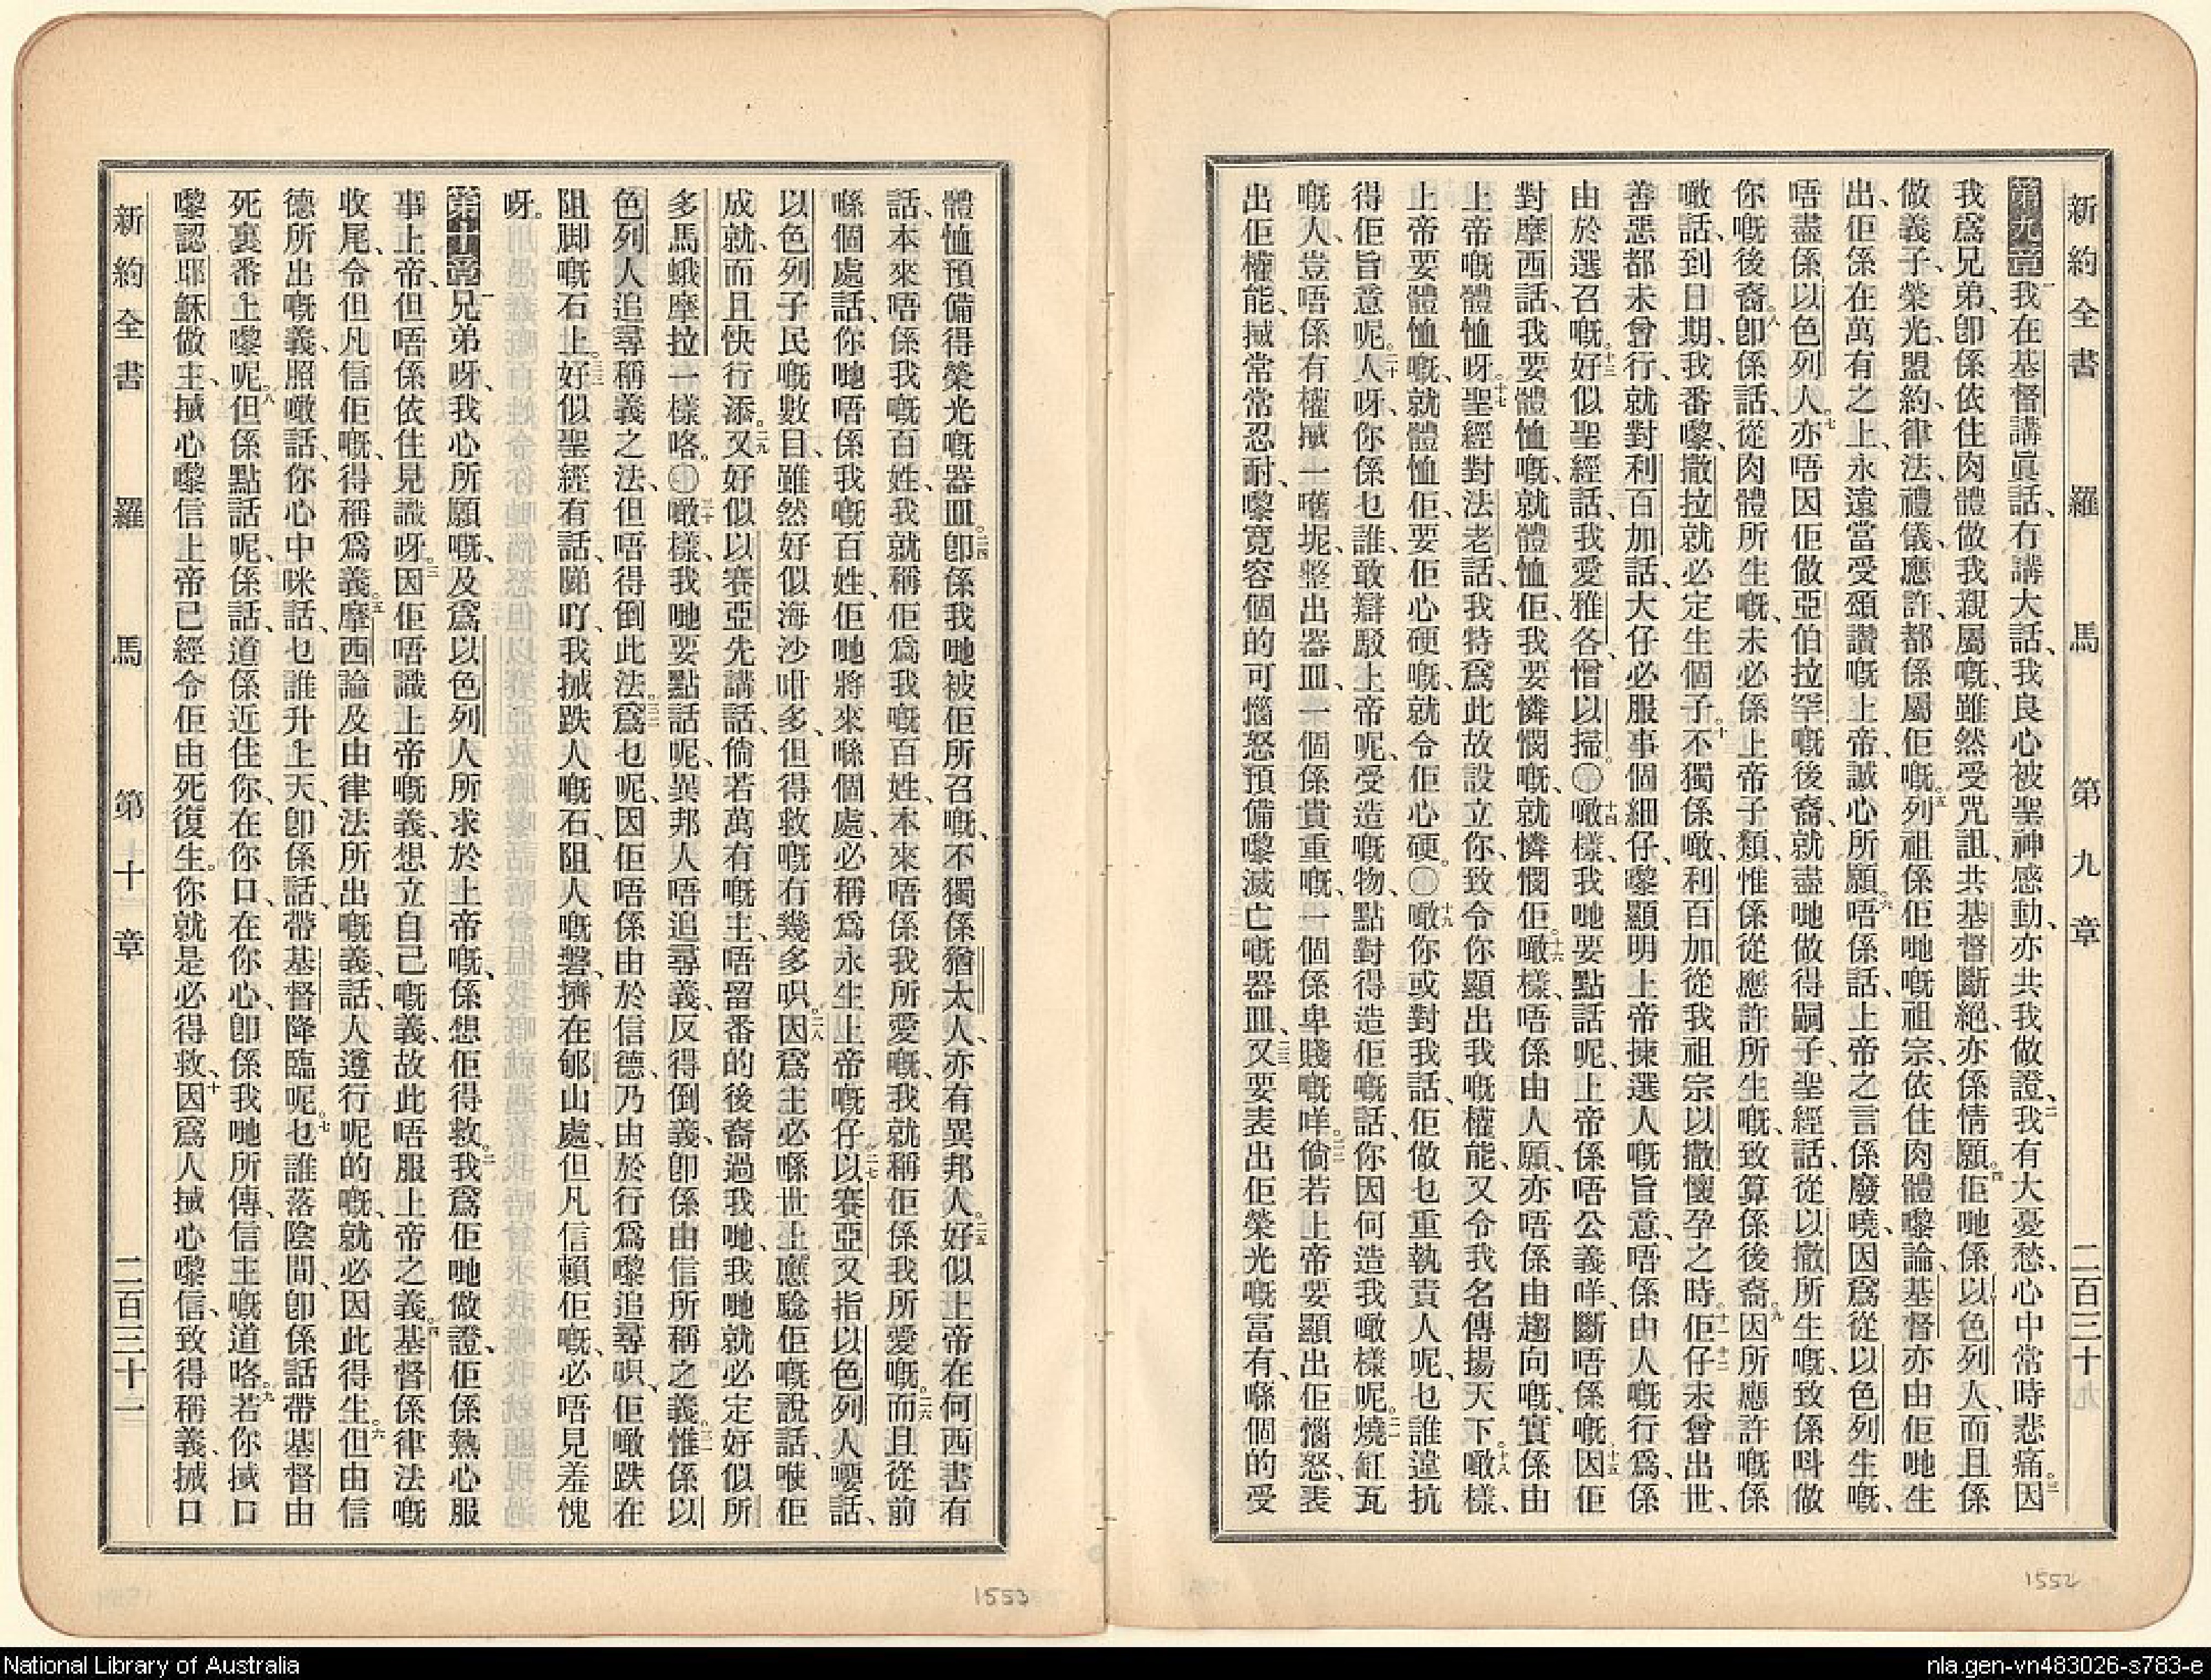 新約全書 羅馬 第九章 二百三十
第九章我在基督講眞話、冇講大話、我良心被聖神感動、亦共我做證、二我有大憂愁、心中常時悲痛。三因
我爲兄弟、卽係依住肉體做我親屬嘅、雖然受咒詛、共基督斷絕、亦係情願。四佢哋係以色列人、而且係
做義子、榮光、盟約、律法、禮儀、應許、都係屬佢嘅。五列祖係佢哋嘅祖宗、依住肉體嚟論、基督亦由佢哋生
出、佢係在萬有之上、永遠當受頌讚嘅上帝、誠心所願。六唔係話、上帝之言係廢曉、因爲從以色列生嘅、
唔盡係以色列人。七亦唔因佢做亞伯拉罕嘅後裔、就盡哋做得嗣子、聖經話、從以撒所生嘅、致係呌做
你嘅後裔。八卽係話、從肉體所生嘅、未必係上帝子類、惟係從應許所生嘅、致算係後裔。九因所應許嘅係
噉話、到日期、我番嚟、撒拉就必定生個子。十不獨係噉、利百加從我祖宗以撒懷孕之時。十一十二佢仔未曾出世、
善惡都未曾行、就對利百加話、大仔必服事個細仔、嚟顯明上帝揀選人嘅旨意、唔係由人嘅行爲、係
由於選召嘅。十三好似聖經話、我愛雅各、憎以掃。十四噉樣、我哋要點話呢、上帝係唔公義咩、斷唔係嘅。十五因佢
對摩西話、我要體恤嘅、就體恤佢、我要憐憫嘅、就憐憫佢。十六噉樣、唔係由人願、亦唔係由趨向嘅、實係由
上帝嘅體恤呀。十七聖經對法老話、我特爲此故設立你、致令你顯出我嘅權能、又令我名傳揚天下。十八噉樣、
上帝要體恤嘅、就體恤佢、要佢心硬嘅、就令佢心硬。十九噉你或對我話、佢做乜重執責人呢、乜誰違抗
得佢旨意呢。二十人呀、你係乜誰、敢辯駁上帝呢、受造嘅物、點對得造佢嘅話、你因何造我噉樣呢。二一燒缸瓦
嘅人、豈唔係有權、搣一嚿坭、整出器皿、一個係貴重嘅、一個係卑賤嘅咩。二二倘若上帝要顯出佢惱怒、表
出佢權能、搣常常忍耐、嚟寬容個的可惱怒預備嚟滅亡嘅器皿、二三又要表出佢榮光嘅富有、喺個的受
體恤預備得榮光嘅器皿。二四卽係我哋被佢所召嘅、不獨係猶太人、亦有異邦人。二五好似上帝在何西書有
話、本來唔係我嘅百姓、我就稱佢爲我嘅百姓、本來唔係我所愛嘅、我就稱佢係我所愛嘅。二六而且從前
喺個處話、你哋唔係我嘅百姓、佢哋將來喺個處、必稱爲永生上帝嘅仔。二七以賽亞又指以色列人嘅話、
以色列子民嘅數目、雖然好似海沙咁多、但得救嘅冇幾多呮。二八因爲主必喺世上應驗佢嘅說話、喺佢
成就、而且快行添。二九又好似以賽亞先講話、倘若萬有嘅主、唔留番的後裔過我哋、我哋就必定好似所
多馬蛾摩拉一樣咯。三十噉樣、我哋要點話呢、異邦人唔追尋義、反得倒義、卽係由信所稱之義。三一惟係以
色列人追尋稱義之法、但唔得倒此法。三二爲乜呢、因佢唔係由於信德、乃由於行爲嚟追尋呮、佢噉跌在
阻脚嘅石上。三三好似聖經有話、睇吖、我搣跌人嘅石、阻人嘅磐、擠在郇山處、但凡信賴佢嘅、必唔見羞愧
呀。
第十章一兄弟呀、我心所願嘅、及爲以色列人所求於上帝嘅、係想佢得救。二我爲佢哋做證、佢係熱心服
事上帝、但唔係依住見識呀。三因佢唔識上帝嘅義、想立自己嘅義、故此唔服上帝之義。四基督係律法嘅
收尾、令但凡信佢嘅、得稱爲義。五摩西論及由律法所出嘅義、話、人遵行呢的嘅、就必因此得生。六但由信
德所出嘅義、照噉話、你心中咪話、乜誰升上天、卽係話、帶基督降臨呢。七乜誰落陰間、卽係話帶基督由
死裏番上嚟呢。八但係點話呢、係話、道係近住你、在你口、在你心、卽係我哋所傳、信主嘅道咯。九若你搣口
嚟認耶穌做主、搣心嚟信上帝已經令佢由死復生。你就是必得救、十因爲人搣心嚟信、致得稱義、搣口
新約全書 羅馬 第十章 二百三十一
1552
1553
National Library of Australia
nla.gen-vn483026-s783-e